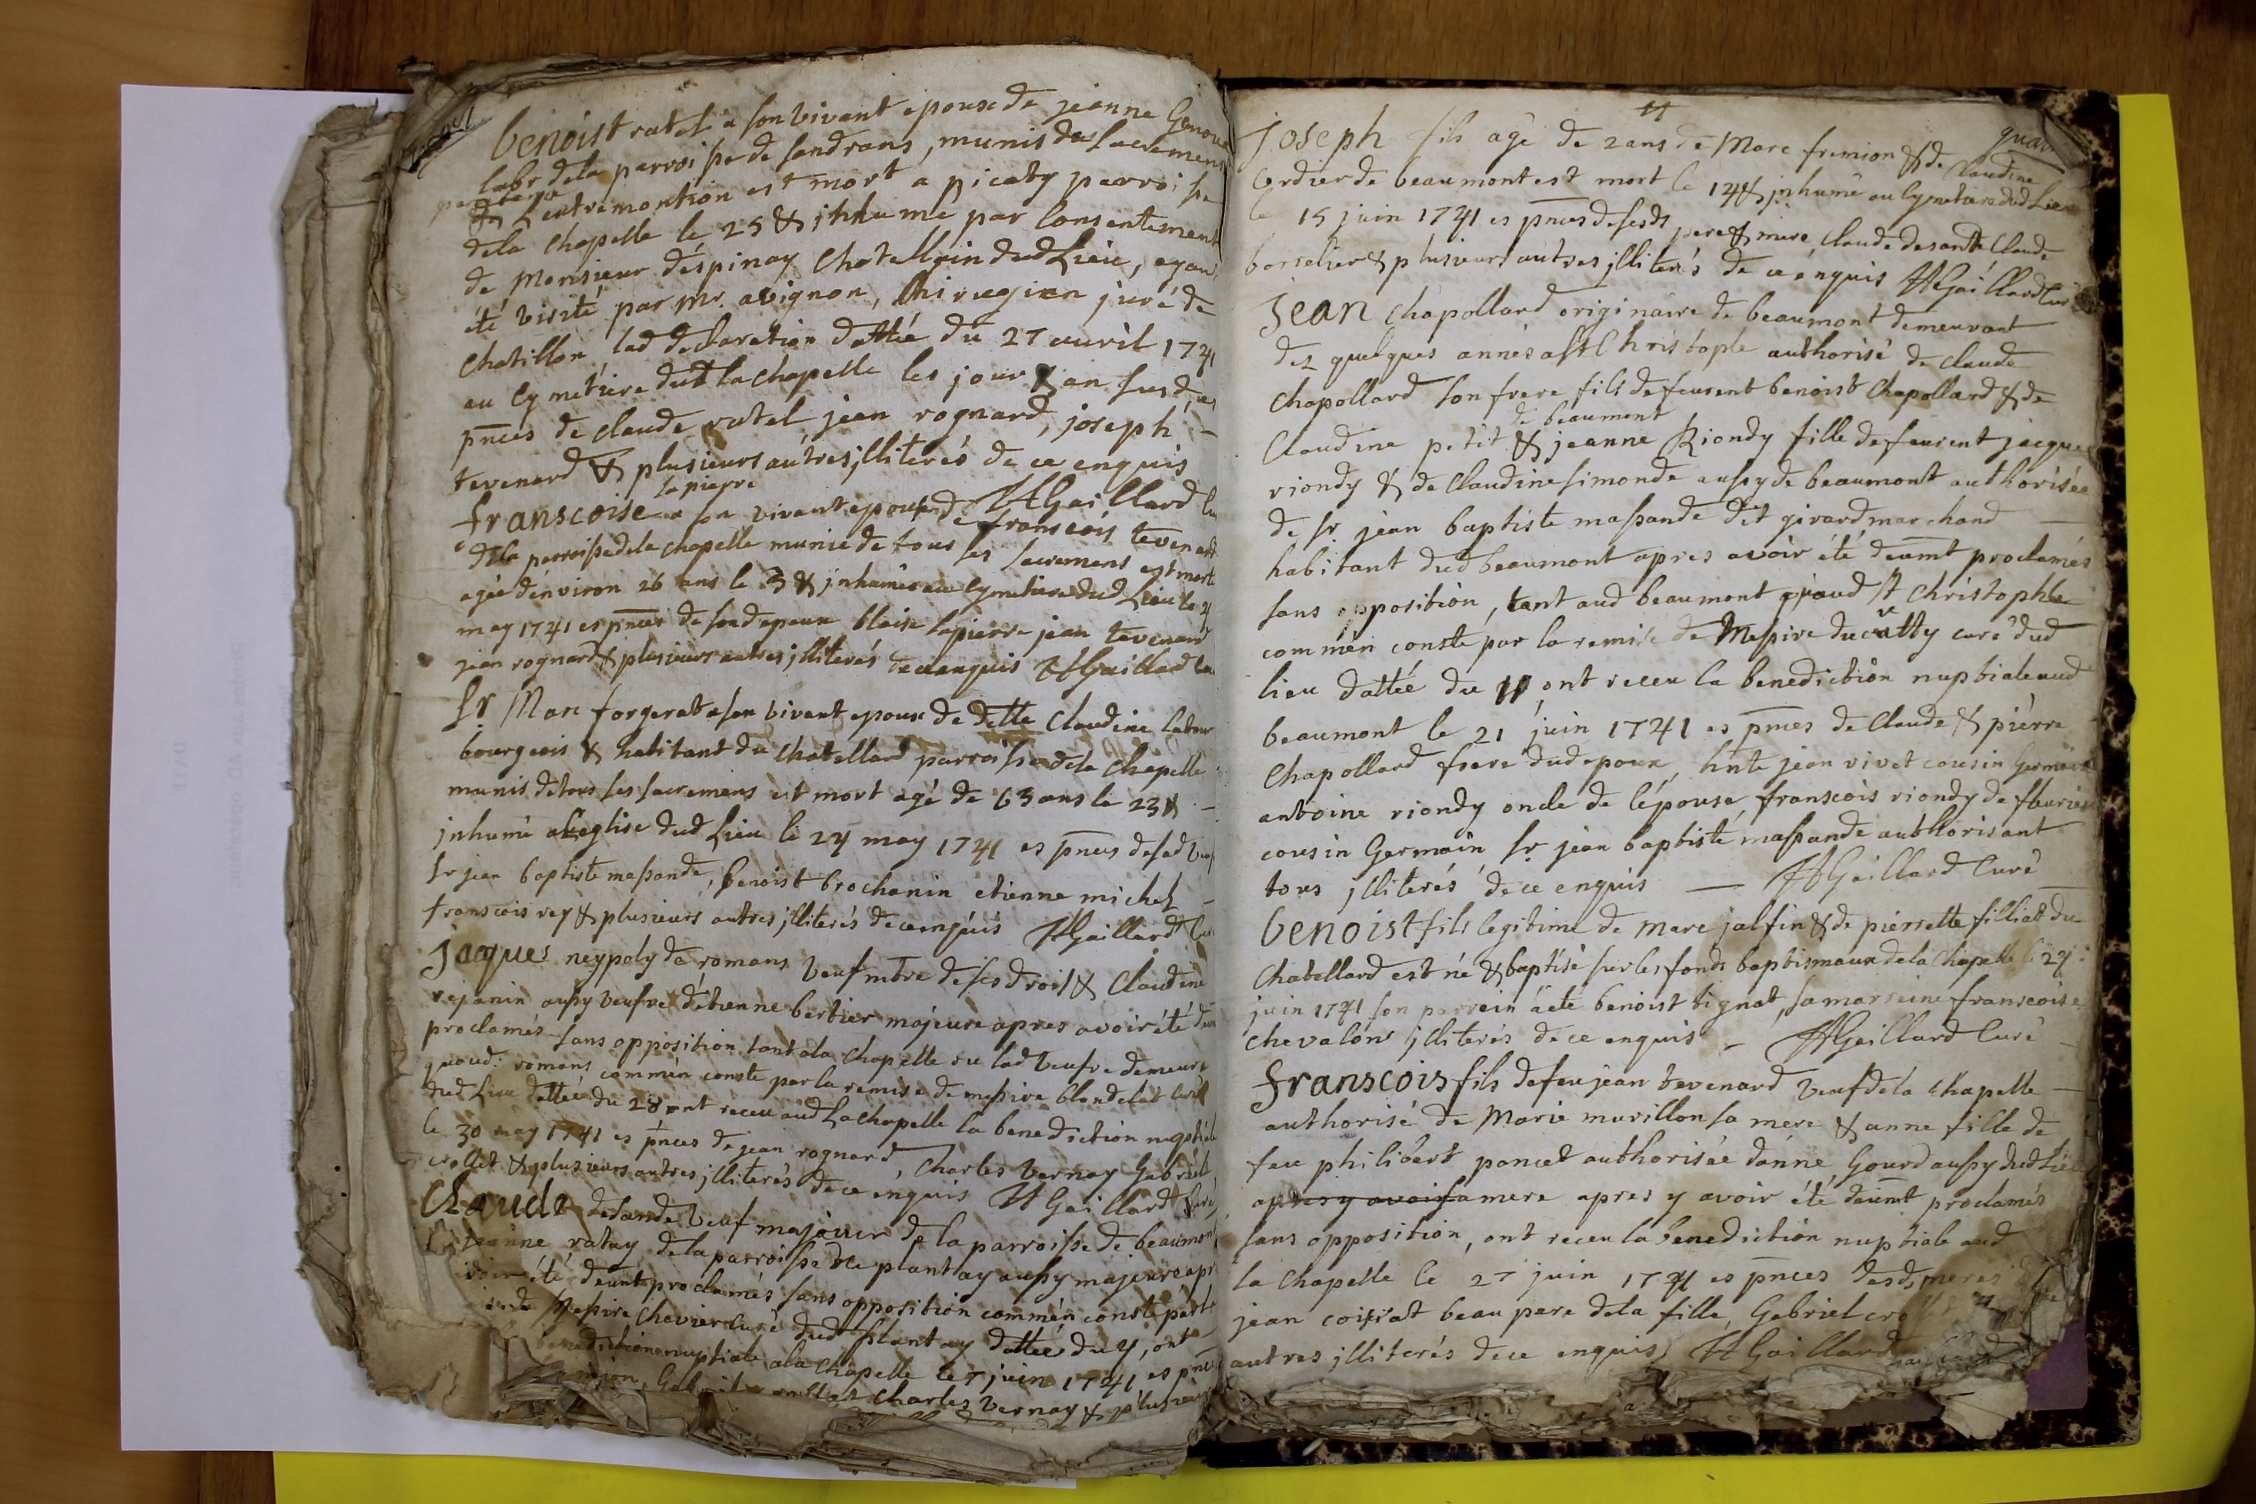 benoist ratel a son vivant epoux de jeanne Genou
labr de la parroisse de sandrans, munis des sacremens
de L'entremontion est mort a picaty parroisse
de la chapelle le 25 & jnhumé par consentement
de Monsieur déspinay chatellain dud Lieu, ayant
été visité par mr. avignon, chirugien juré de
chatillon lad declaration dattée du 27 avril 1741
au cymetiere dud la chapelle les jour & an susd, es
pnces de claude ratel jean rognard, joseph
tevenard & plusieurs autres jlliterés de ce enquis
HGaillard Cu
lapierre
franscoise a son vivant epouse de franscois tevenard
de la parroisse de la chapelle munie de tous ses sacremens est morte
agée d'environ 26 ans le 3 & jnhumée au cymetiere dud Lieu le 4
may 1741 es pnces de sond epoux blaise lapierre jean tevenard
jean rognard & plusieurs autres jlliterés de ce enquis HGaillard Cu
Sr Marc forgerat a son vivant epoux de delle claudine latour
bourgeois & habitant du chatellard parroisse de la chapelle
munis de tous ses sacremens est mort agé de 63 ans le 23 &
jnhumé a Leglise dud Lieu le 24 may 1741 es pnces de sad veuf
Sr jean baptiste massande, benoist brochanin etienne michel
franscois rey & plusieurs autres jlliterés de ce enquis HGaillard Cu
jaques neypoly de romans veuf mtre de ses drois & claudine
rejanin aussy veufve détienne bertier majeure apres avoir été du
proclamés sans opposition tant a la chapelle ou lad veufve demeure
quaud. romans commén conste par la remise de messire blondelat curé
dud Lieu dattée du 28 ont receu aud La chapelle la benediction nuptiale
le 30 may 1741 es pnces de jean rognard, charles vernay Gabriel
crollet & plusieurs autres jlliterés de ce enquis HGaillard Curé
Claude desande veuf majeur de la parroisse de beaumont
& jeanne ratay de la parroisse de plantay aussy majeure apr
avoir été deumt proclamés sans opposition commén conste par
messire chevier curé dud plantay dattée du 4, ont
benediction nuptiale a la chapelle le 7 juin 1741 es pnc
Gabriel crollet charles vernay & plusieurs
11
joseph fils agé de 2 ans de Marc fremion & de claudine
cordier de beaumont est mort le 14 & jnhumé au cymetiere dud Lieu
le 15 juin 1741 es pnces de sesds pere & mere, claude desande claude
borrelier & plusieurs autres jlliterés de ce énquis HGaillard Cur
jean chapollard originaire de beaumont demeurant
dez quelques annés a st Christople authorisé de claude
chapollard son frere fils de feurent benoist chapollard & de
de beaumont
claudine petit & jeanne Riondy fille de feurent jacques
riondy & de claudine simonde aussy de beaumont authorisée
de sr. jean baptiste massande dit girard marchand
habitant dud beaumont apres avoir été deumt proclamés
sans opposition, tant aud beaumont quaud st christophle
commén conste par la remise de Messire ducratty curé dud
lieu dattée du 11 ont receu la benediction nuptiale aud
beaumont le 21 juin 1741 es pnces de claude & piérre
chapollard frere dud epoux, hnte jean vivet cousin Germain
antoine riondy oncle de lépouse, franscois riondy de fleurieu
cousin Germain Sr jean baptiste massande authorisant
tous jlliterés de ce enquis HGaillard Curé
benoist fils legitime de marc jalfin & de pierrette filliat du
chatellard est né & baptisé sur les fonds baptismaux de la chapelle le 24
juin 1741 son parrein a été benoist tignat, sa marreine franscoise
chevalon jlliterés de ce enquis HGaillard Curé
franscois fils de feu jean tevenard veuf de la chapelle
authorisé de Marie murillon sa mere & anne fille de
feu philibert poncet authorisée d'anne Gourd aussy dud Lieu
apres y avoir sa mere apres y avoir été deumt proclamés
sans opposition, ont receu la benediction nuptiale aud
la chapelle le 27 juin 1741 es pnces desds meres
jean coirrat beau pere de la fille, Gabriel
autres jlliterés de ce enquis HGaillard